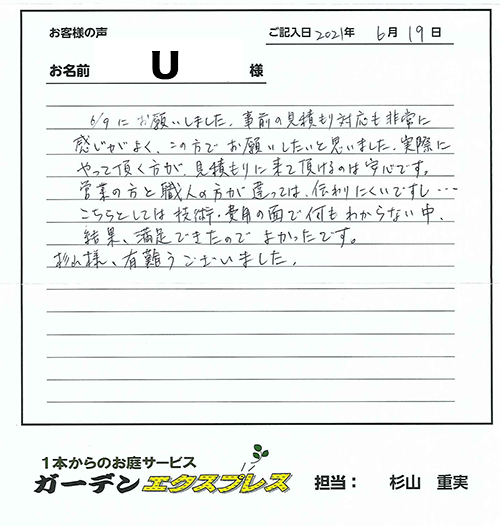 お客様の声
ご記入日 2021年 6月 19日
お名前 U 様
6/9に お願いしました。事前の見積もり対応も非常に
感じがよく、この方で お願いしたいと思いました。実際に
やって頂く方が、見積もりに来て頂けるのは安心です。
営業の方と職人の方が違っては、伝わりにくいですし…
こちらとしては 技術・費用の面で何もわからない中、
結果、満足できたので よかったです。
杉山様、有難うございました。
1本からのお庭サービス
ガーデンエクスプレス 担当： 杉山 重実